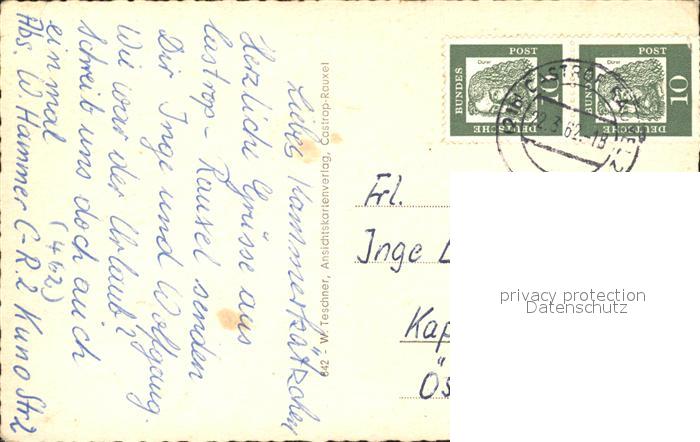 Liebes Hammerkätzchen
Herzliche Grüsse aus
Castrop-Rauxel senden
Dir Inge und Wolfgang.
Wie war der Urlaub?
schreib uns doch auch
einmal (462)
Abs. W. Hammer C-R.2 Kuno Str2
642 - W. Teschner, Ansichtskartenverlag, Castrop-Rauxel
DEUTSCHE
BUNDES
POST
Dürer
10
DEUTSCHE
BUNDES
POST
Dürer
10
22.3.62.-18
Frl.
Inge L
Kap
Ös
privacy protection
Datenschutz